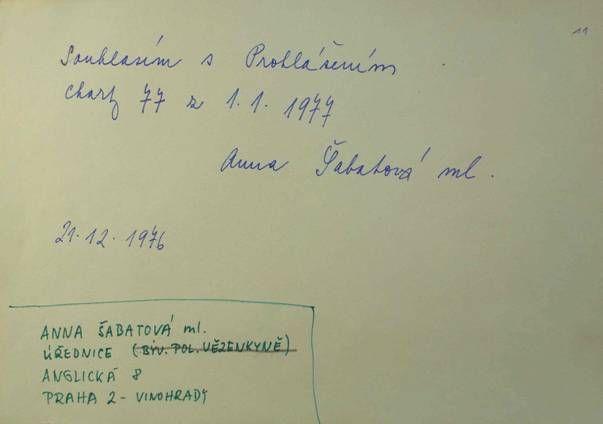 11
Souhlasím s Prohlášením
Charty 77 z 1.1. 1977
Anna Šabatová ml.
21.12.1976
ANNA ŠABATOVÁ ml.
ÚŘEDNICE (BÝV. POL. VĚZENKYNĚ)
ANGLICKÁ 8
PRAHA 2 - VINOHRADY